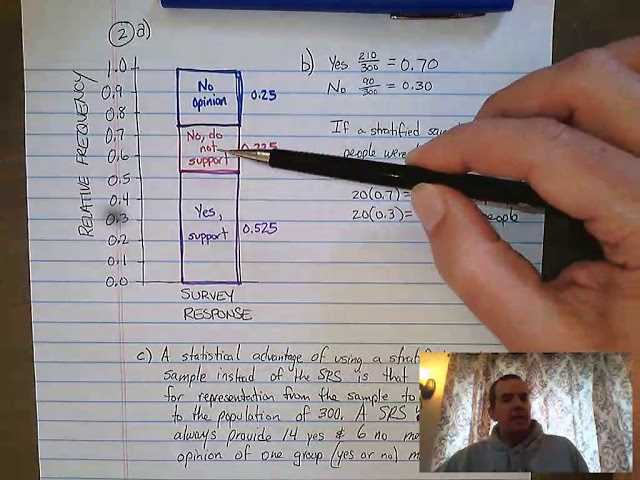 2 a)
RELATIVE FREQUENCY
1.0
0.9
0.8
0.7
0.6
0.5
0.4
0.3
0.2
0.1
0.0
No opinion
0.25
No, do not support
0.225
Yes, support
0.525
SURVEY
RESPONSE
b) Yes 210/300 = 0.70
No 90/300 = 0.30
If a stratified
people were
20(0.7)=
20(0.3)=
c) A statistical advantage of using a
sample instead of the SRS is that
for representation from the sample to
to the population of 300. A SRS
always provide 14 yes & 6 no
opinion of one group (yes or no)